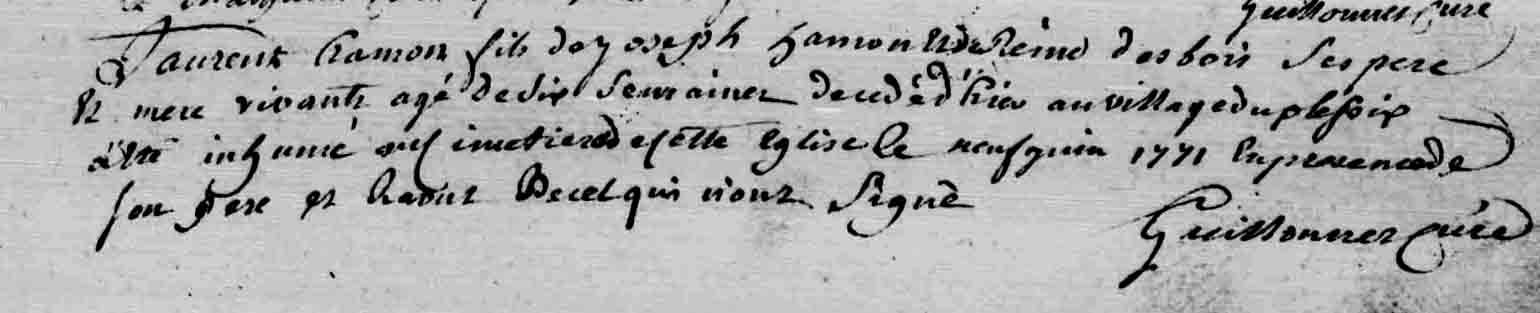 Guillonner Curé
Laurent hamon fils de yoseph hamon Et de Reine desbois Ses pere
Et mere vivants agé de Six Semaines decedé d'hier au village du plessix
a Eté inhumé au Cimetiere de Cette Eglise le neuf juin 1771 En presence de
Son pere et Raoul Becel qui n'ont Signé
Guillonner Curé